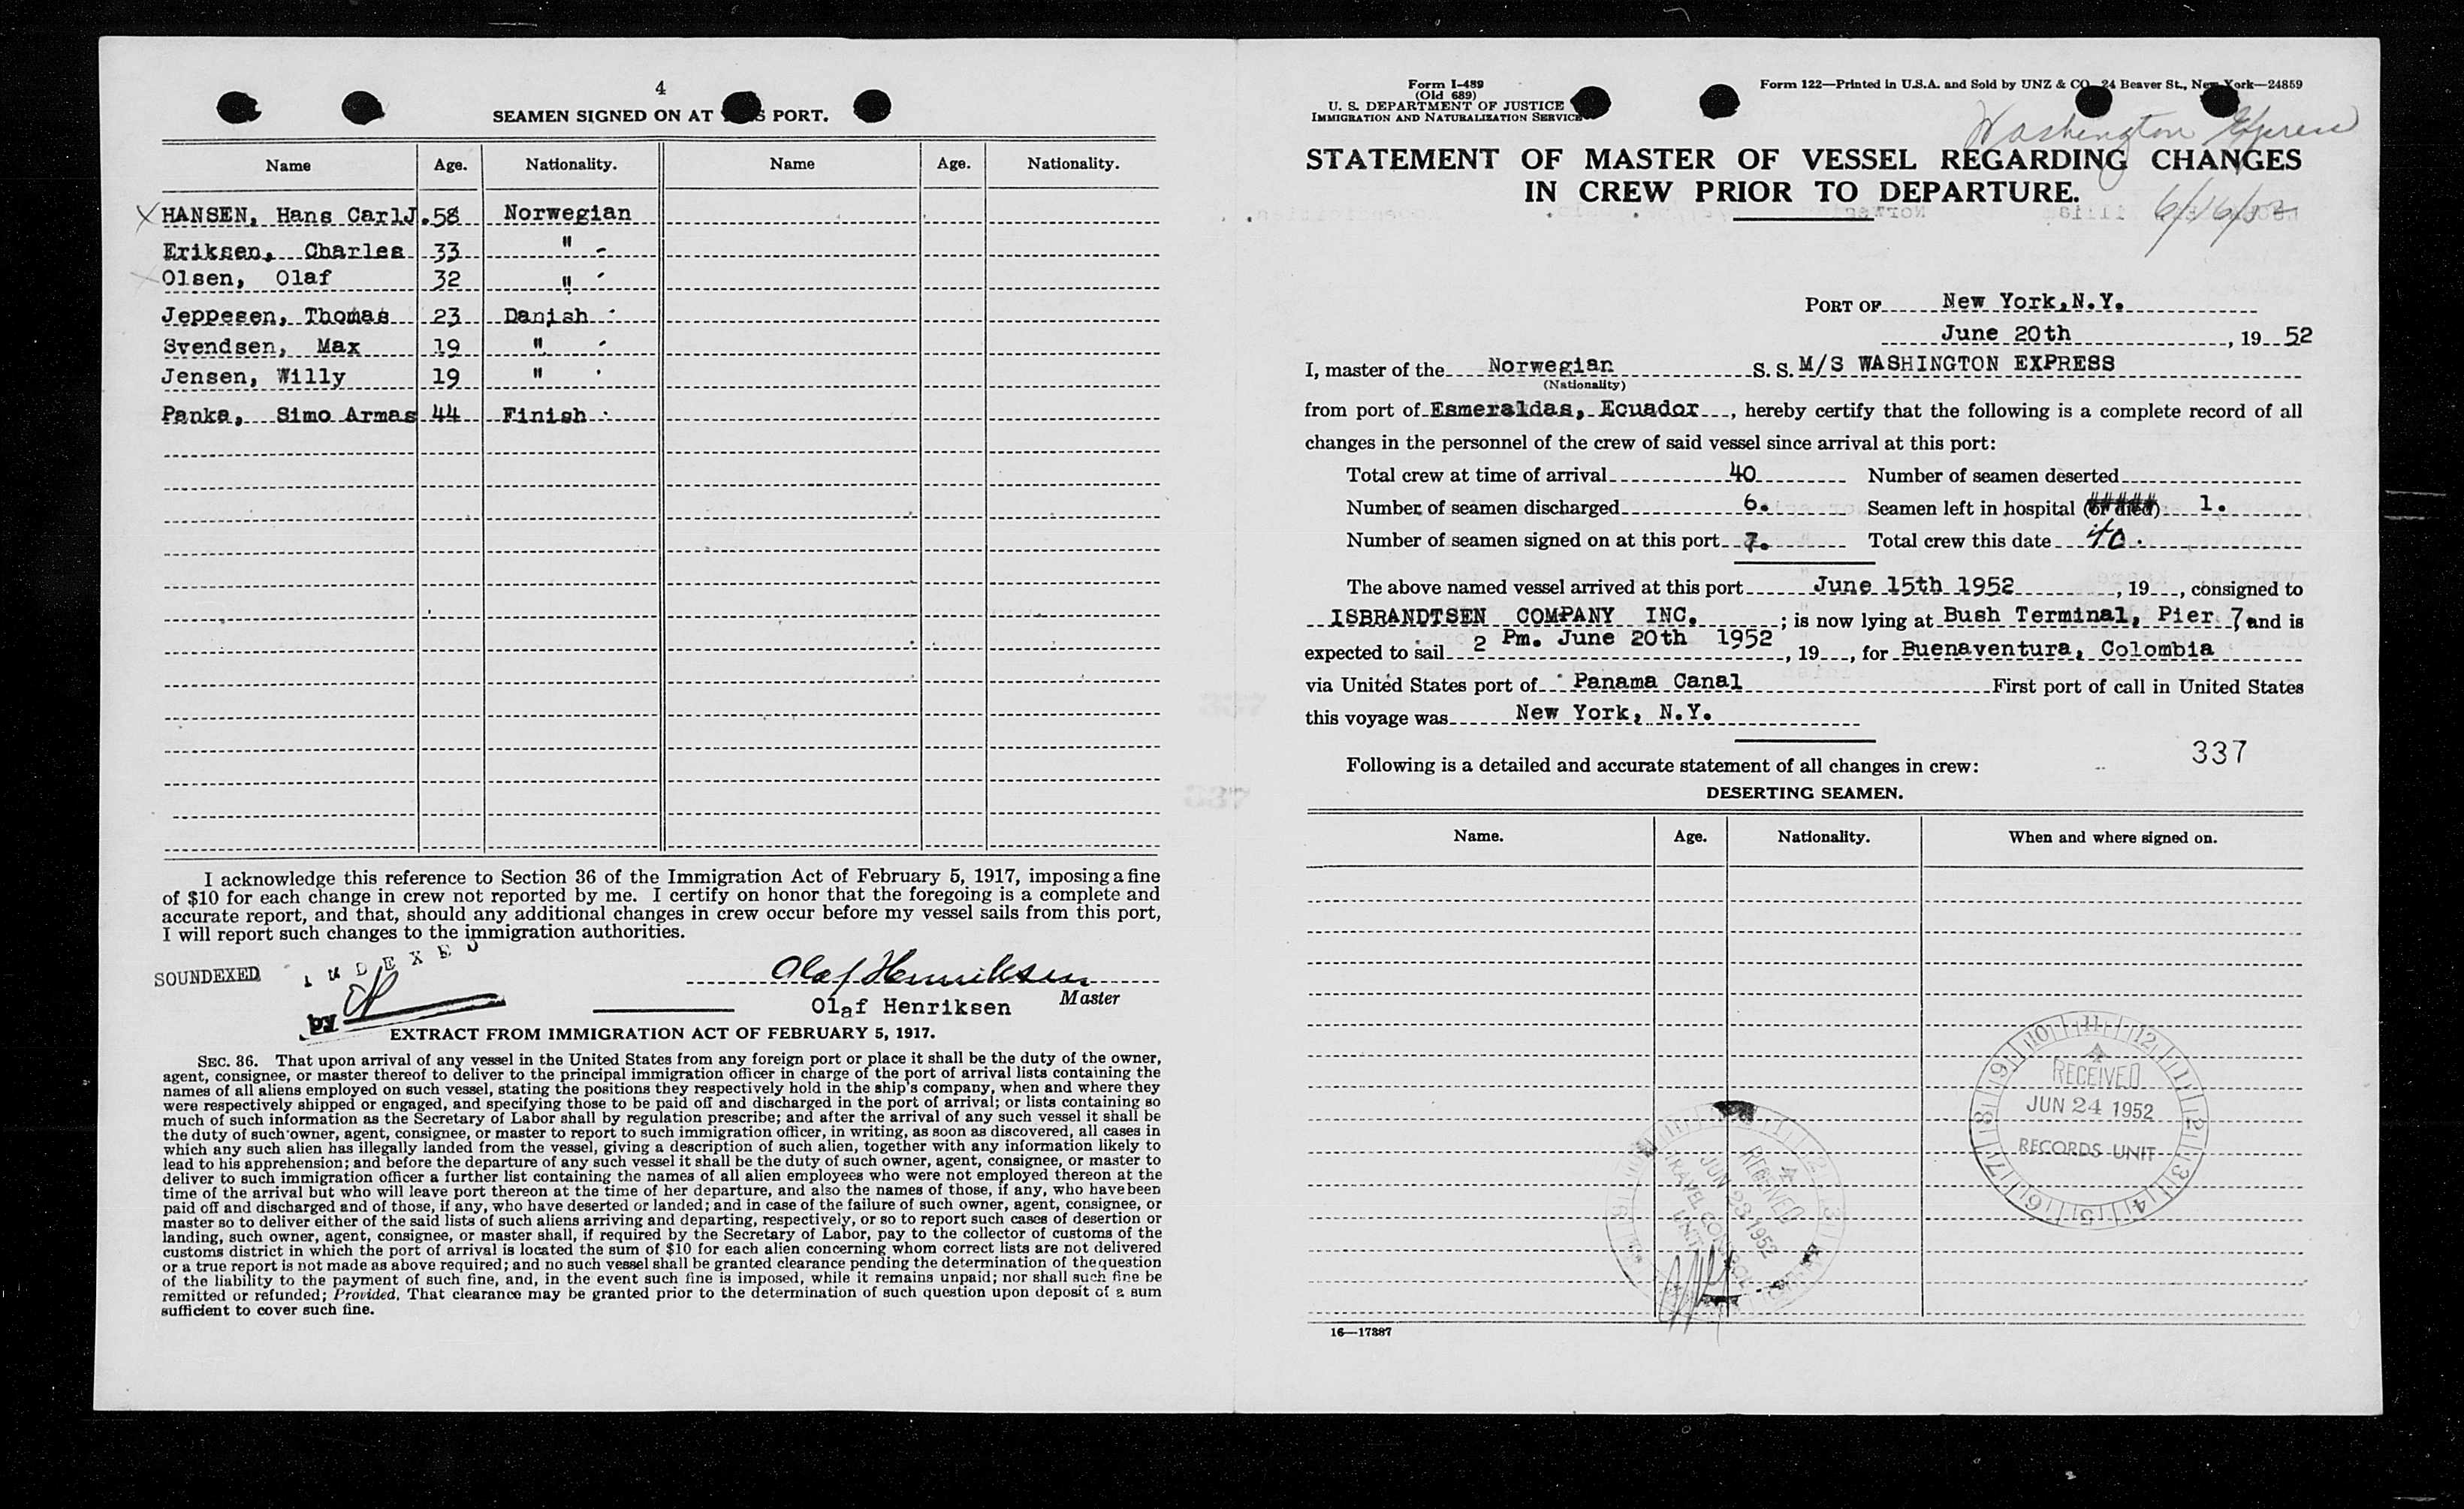 4
SEAMEN SIGNED ON AT PORT.
Name Age. Nationality. Name Age. Nationality.
HANSEN, Hans CarlJ. 58 Norwegian
Eriksen, Charles 33 "
Olsen, Olaf 32 "
Jeppesen, Thomas 23 Danish
Svendsen, Max 19 "
Jensen, Willy 19 "
Panka, Simo Armas 44 Finish
I acknowledge this reference to Section 36 of the Immigration Act of February 5, 1917, imposing a fine
of $10 for each change in crew not reported by me. I certify on honor that the foregoing is a complete and
accurate report, and that, should any additional changes in crew occur before my vessel sails from this port,
I will report such changes to the immigration authorities.
SOUNDEXED
INDEXED
by
Olaf Henriksen
Olaf Henriksen Master
EXTRACT FROM IMMIGRATION ACT OF FEBRUARY 5, 1917.
SEC. 36. That upon arrival of any vessel in the United States from any foreign port or place it shall be the duty of the owner,
agent, consignee, or master thereof to deliver to the principal immigration officer in charge of the port of arrival lists containing the
names of all aliens employed on such vessel, stating the positions they respectively hold in the ship's company, when and where they
were respectively shipped or engaged, and specifying those to be paid off and discharged in the port of arrival; or lists containing so
much of such information as the Secretary of Labor shall by regulation prescribe; and after the arrival of any such vessel it shall be
the duty of such owner, agent, consignee, or master to report to such immigration officer, in writing, as soon as discovered, all cases in
which any such alien has illegally landed from the vessel, giving a description of such alien, together with any information likely to
lead to his apprehension; and before the departure of any such vessel it shall be the duty of such owner, agent, consignee, or master to
deliver to such immigration officer a further list containing the names of all alien employees who were not employed thereon at the
time of the arrival but who will leave port thereon at the time of her departure, and also the names of those, if any, who have been
paid off and discharged and of those, if any, who have deserted or landed; and in case of the failure of such owner, agent, consignee, or
master so to deliver either of the said lists of such aliens arriving and departing, respectively, or so to report such cases of desertion or
landing, such owner, agent, consignee, or master shall, if required by the Secretary of Labor, pay to the collector of customs of the
customs district in which the port of arrival is located the sum of $10 for each alien concerning whom correct lists are not delivered
or a true report is not made as above required; and no such vessel shall be granted clearance pending the determination of the question
of the liability to the payment of such fine, and, in the event such fine is imposed, while it remains unpaid; nor shall such fine be
remitted or refunded; Provided, That clearance may be granted prior to the determination of such question upon deposit of a sum
sufficient to cover such fine.
Form I-489
(Old 689)
U. S. DEPARTMENT OF JUSTICE
IMMIGRATION AND NATURALIZATION SERVICE
Form 122—Printed in U.S.A. and Sold by UNZ & CO. 24 Beaver St., New York—24859
Washington Express
STATEMENT OF MASTER OF VESSEL REGARDING CHANGES
IN CREW PRIOR TO DEPARTURE.
6/16/52
PORT OF New York, N.Y.
June 20th, 19 52
I, master of the Norwegian S. S. M/S WASHINGTON EXPRESS
(Nationality)
from port of Esmeraldas, Ecuador, hereby certify that the following is a complete record of all
changes in the personnel of the crew of said vessel since arrival at this port:
Total crew at time of arrival 40 Number of seamen deserted
Number of seamen discharged 6. Seamen left in hospital (or died) 1.
Number of seamen signed on at this port 7. Total crew this date 40.
The above named vessel arrived at this port June 15th 1952, 19, consigned to
ISBRANDTSEN COMPANY INC.; is now lying at Bush Terminal, Pier 7, and is
expected to sail 2 Pm. June 20th 1952, 19, for Buenaventura, Colombia
via United States port of Panama Canal First port of call in United States
this voyage was New York, N.Y.
337
Following is a detailed and accurate statement of all changes in crew:
DESERTING SEAMEN.
Name. Age. Nationality. When and where signed on.
RECEIVED
JUN 24 1952
RECORDS UNIT
RECEIVED
JUN 23 1952
TRAVEL CONTROL
UNIT
16—17387